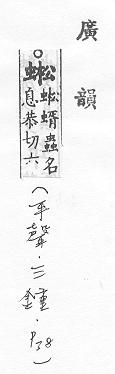 廣韻
○蜙
蜙蝑蟲名
息恭切六
(平聲.三鍾.P38)